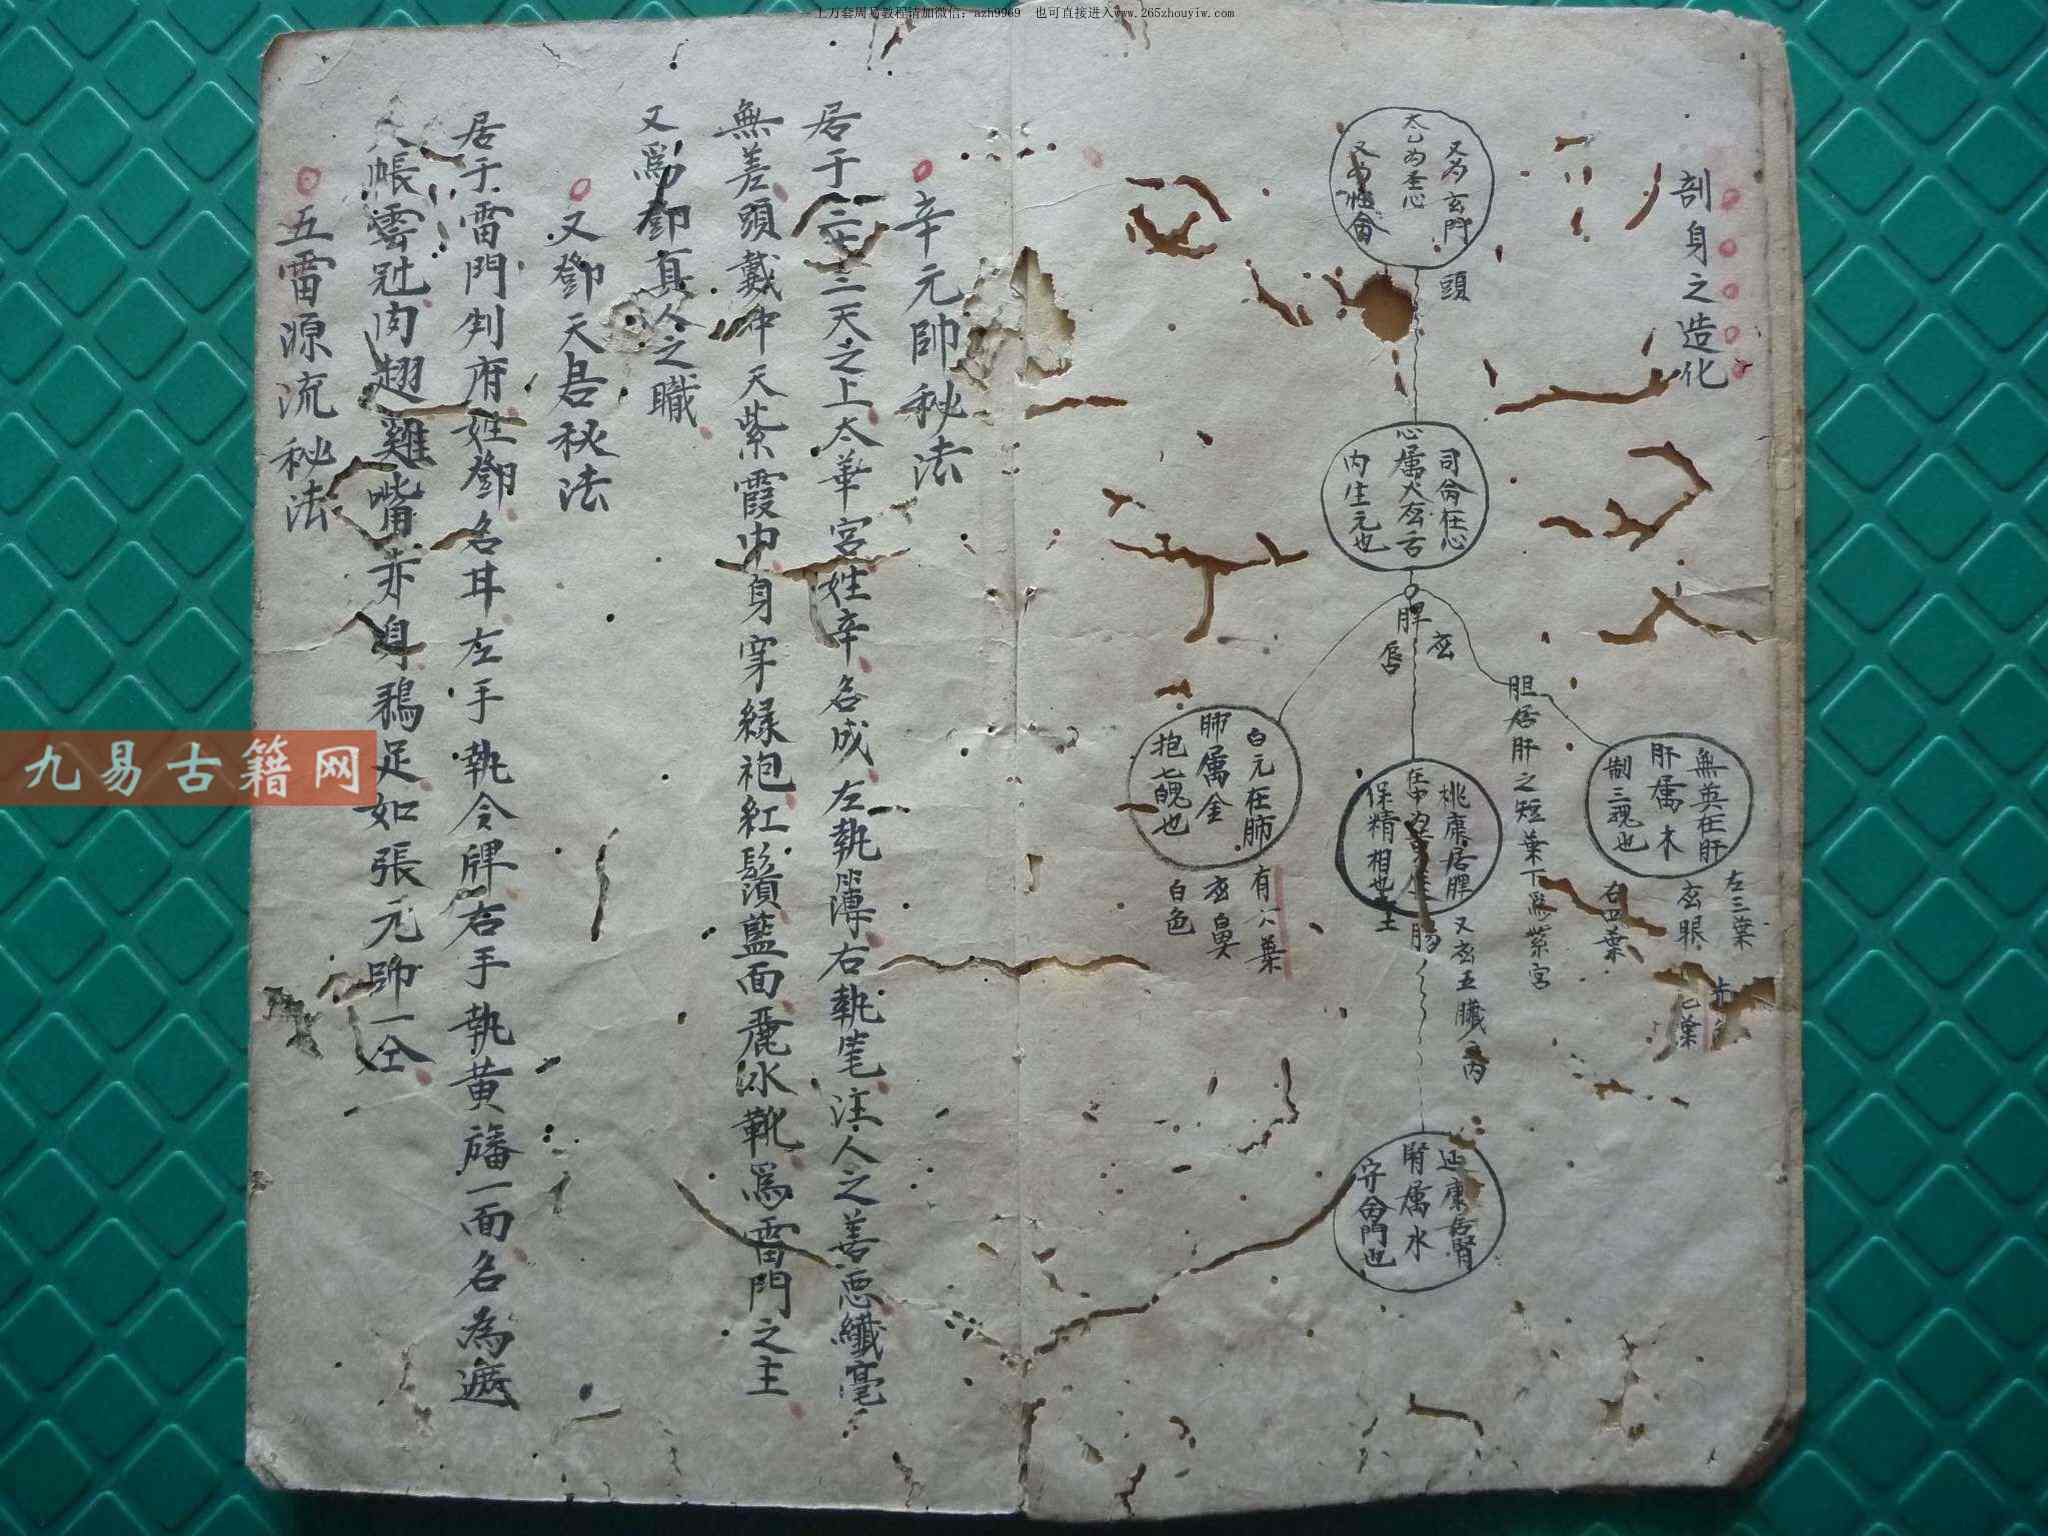 上万套周易教程请加微信：azh9969　也可直接进入www.265zhouyiw.com
剖身之造化
又為玄門
太乙為
又為性會
頭
司命在心
心属火在舌
内生元也
脾
應
唇
胆居肝之短葉下為紫宮
無英在肝
肝属木
制三魂也
左三葉
應眼
右四葉
七葉
白元在肺
肺属金
抱七魄也
有六葉
應鼻
白色
桃康居脾
保精相也
土
腸
又應五臟内
延康居腎
腎属水
守命門也
辛元帥秘法
居于三十三天之上太華宮姓辛名成左執簿右執笔注人之善恶纖毫
無差頭戴冲天紫霞巾身穿綠袍紅鬚藍面鹿冰靴爲雷門之主
又爲鄧真人之職
又鄧天君秘法
居于雷門判府姓鄧名耳左手執令牌右手執黄旛一面名為遮
帳雲冠肉翅雞嘴赤身鴉足如張元帅一仝
五雷源流秘法
九易古籍网